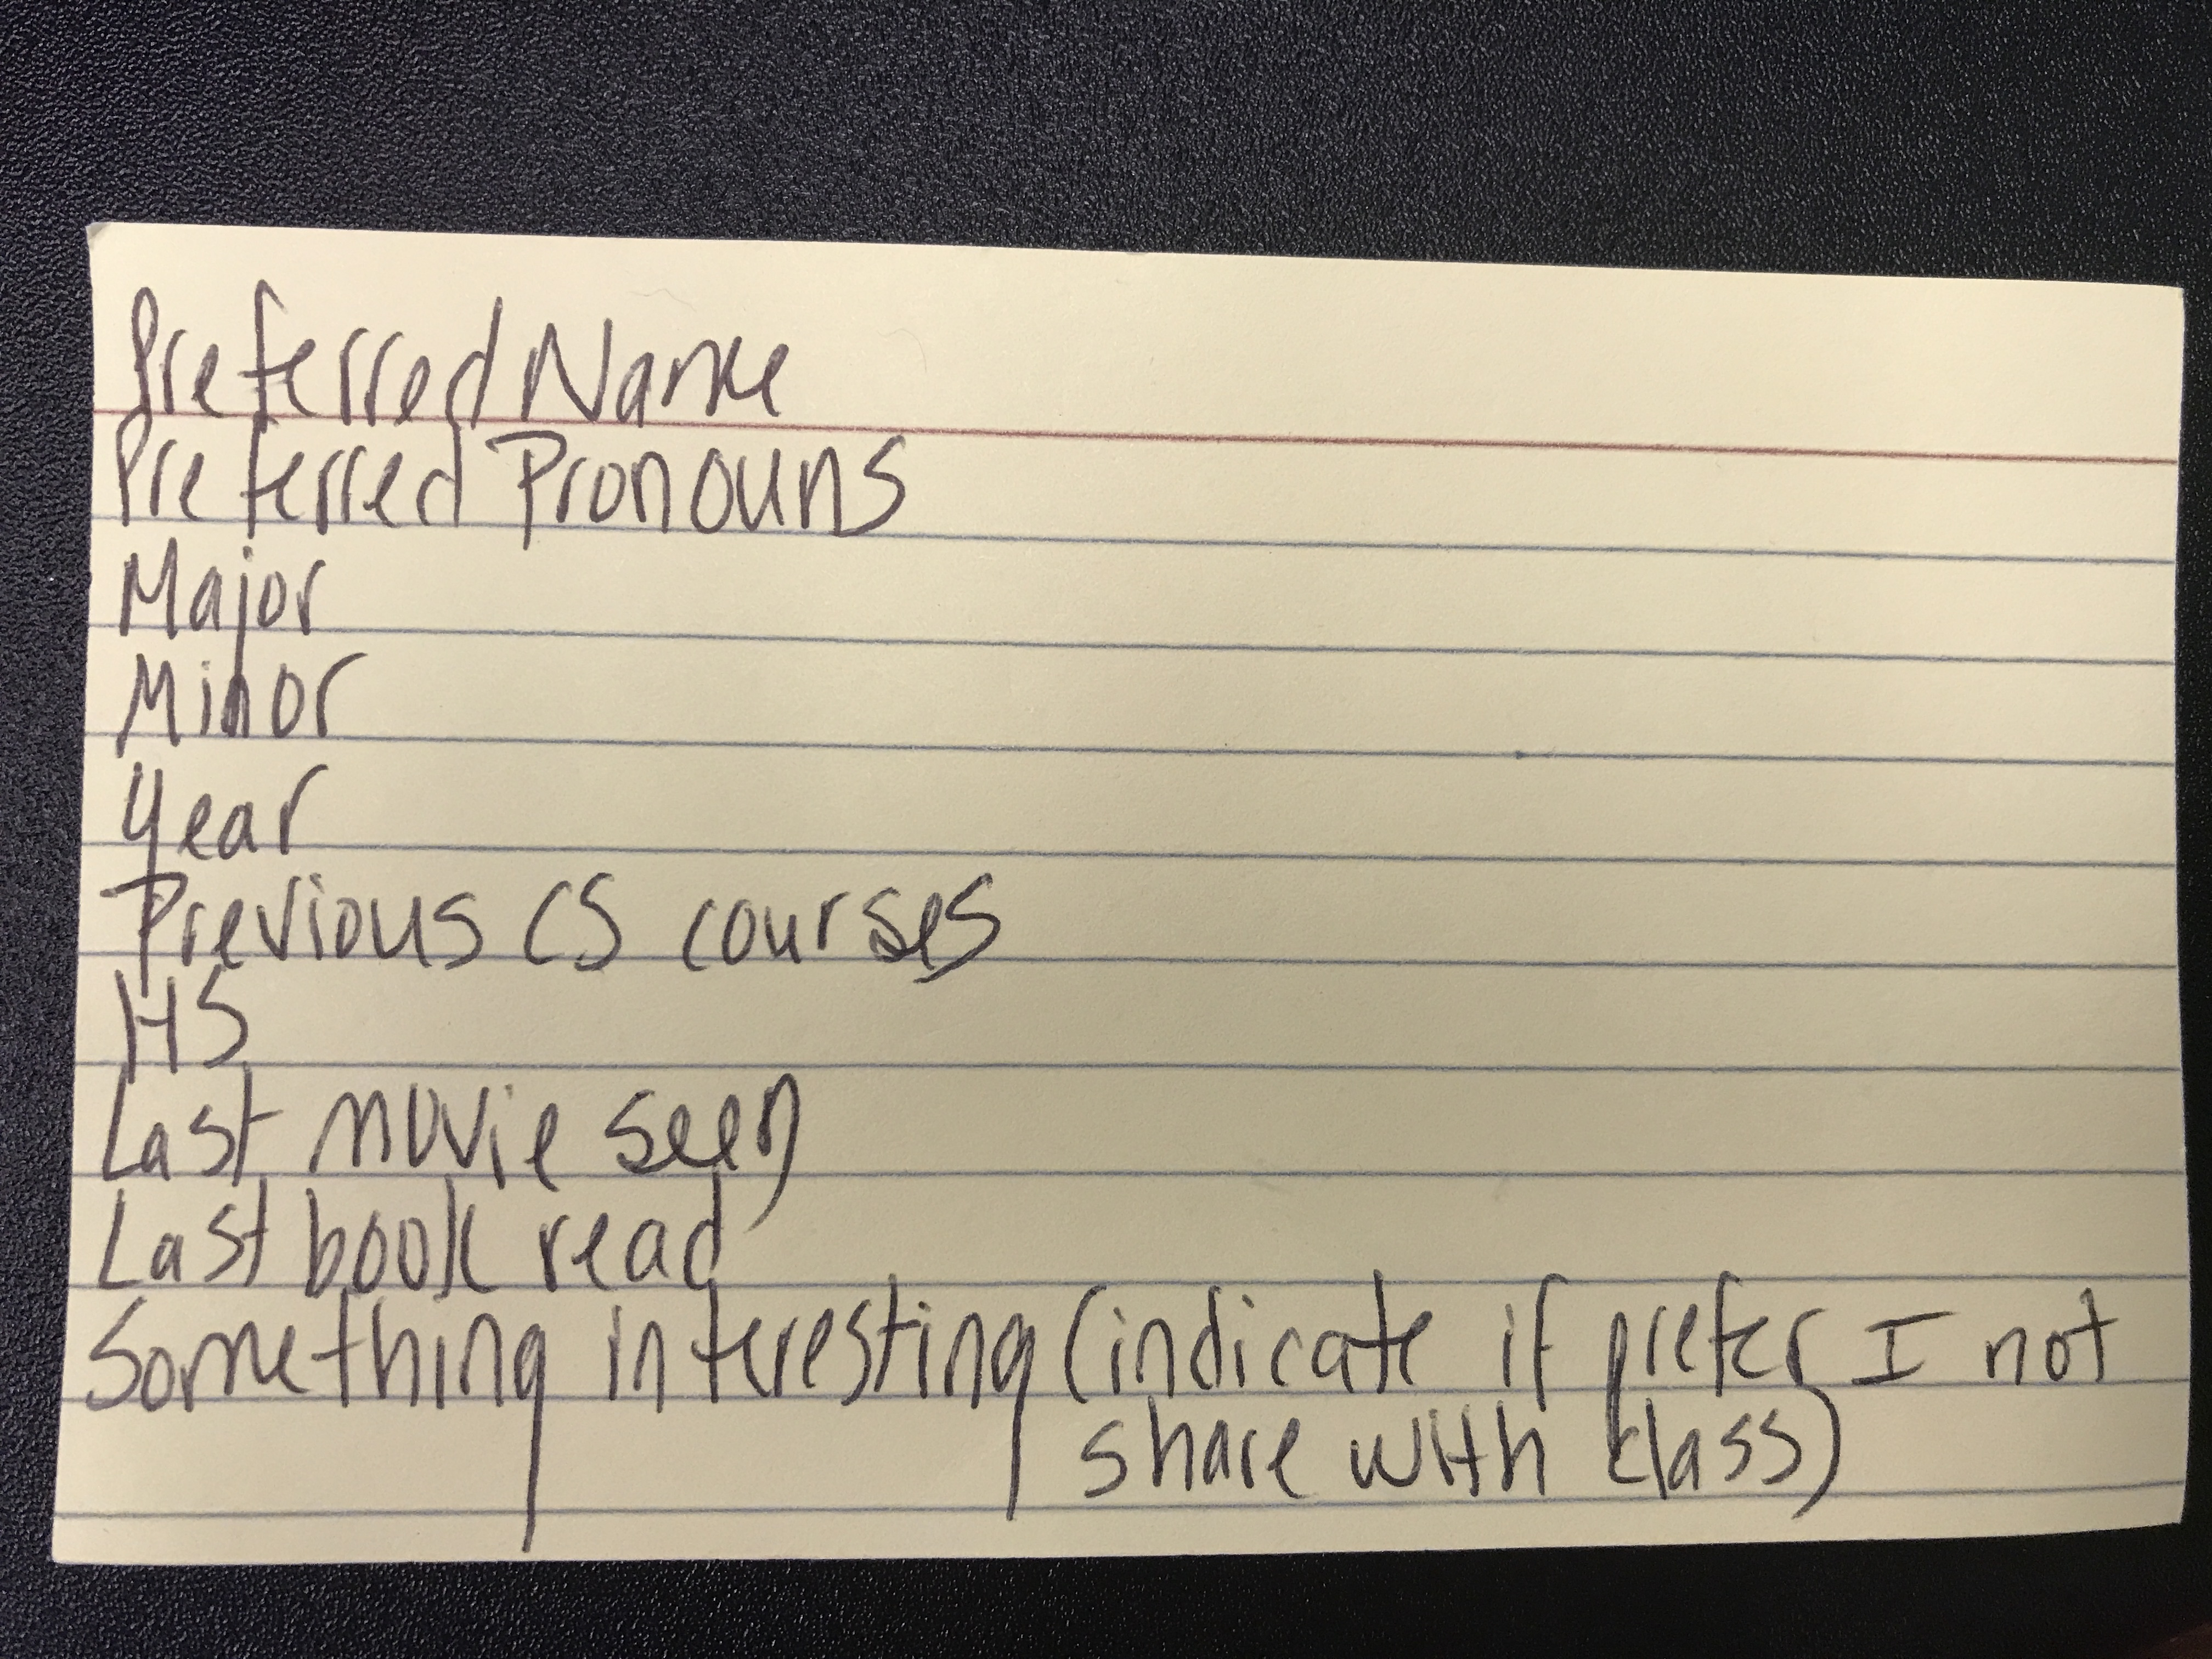 Preferred Name
Preferred Pronouns
Major
Minor
Year
Previous CS courses
HS
Last movie seen
Last book read
Something interesting (indicate if prefer I not
share with class)